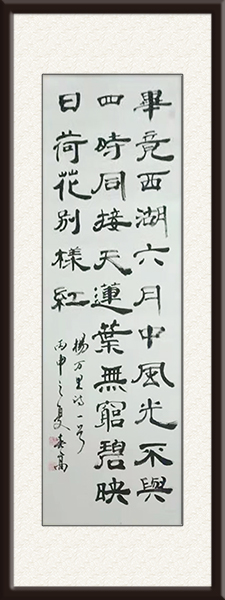 畢竟西湖六月中風光不與
四時同接天蓮葉無窮碧映
日荷花別樣紅
楊万里诗一首
丙申之夏